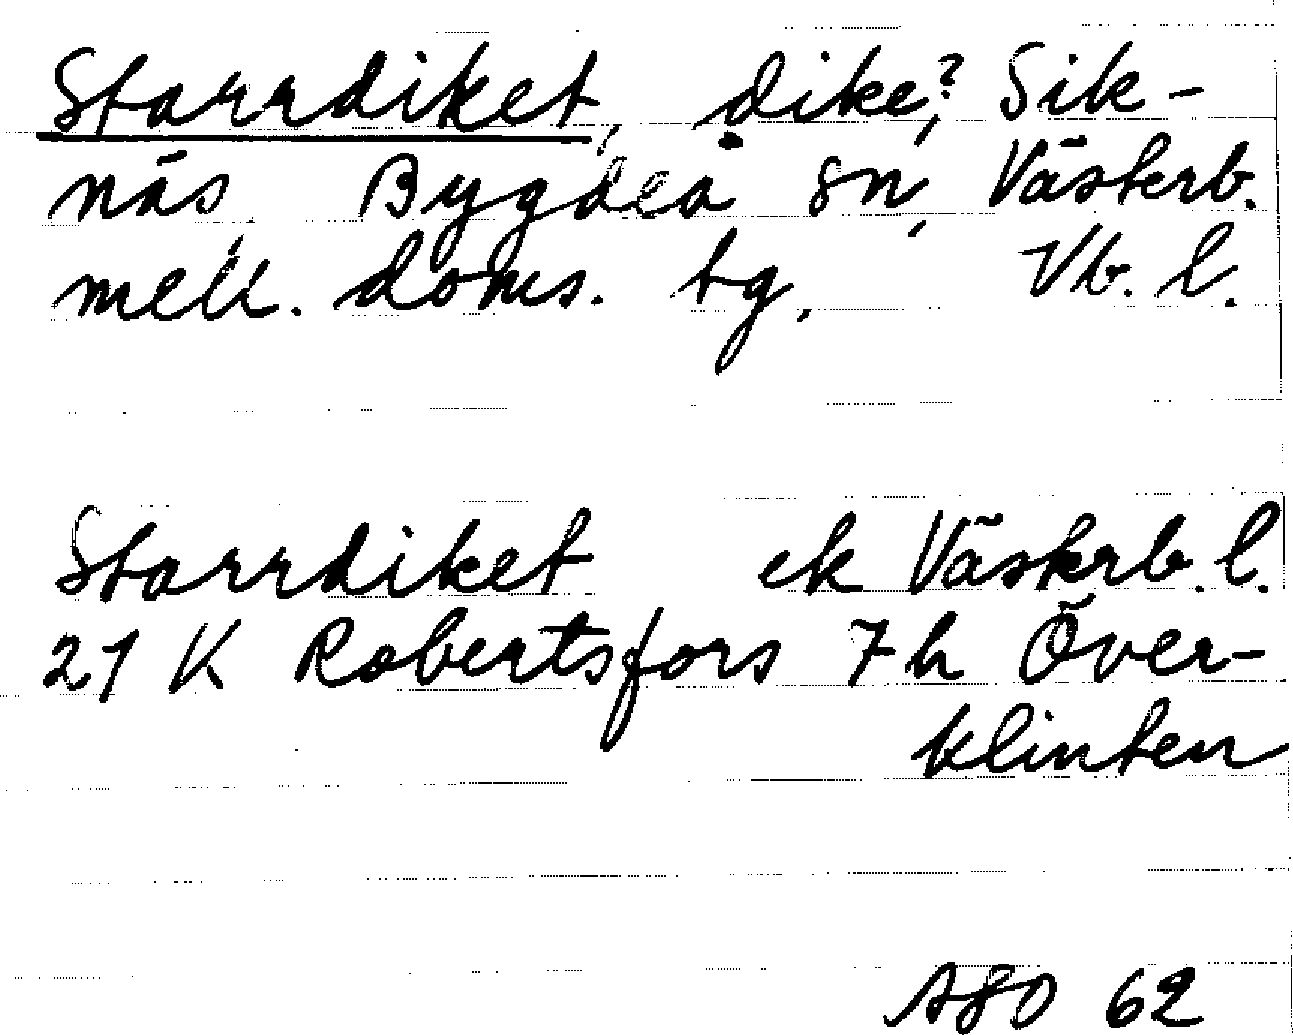 Starrdiket, dike?, Sik-
näs, Bygdeå sn, Västerb.
mell. doms. tg, Vb. l.
Starrdiket ek Västerb. l.
21 K Robertsfors 7h Över-
klinten
ASO 62